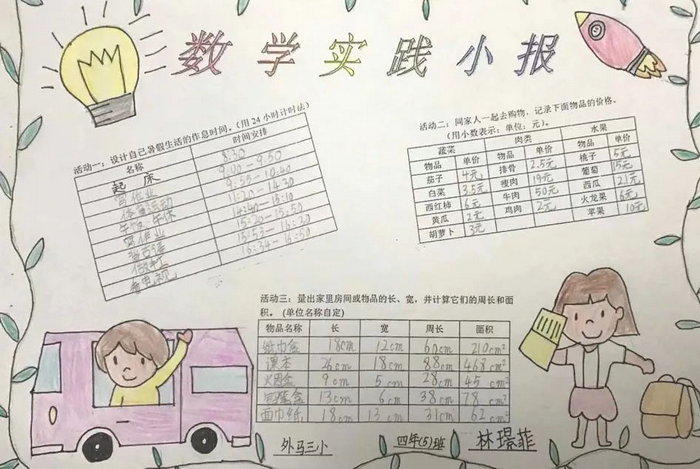 数学实践小报
活动一：设计自己暑假生活的作息时间。（用24小时计时法）
名称 时间安排
起床 8:30
写作业 9:00-9:50
体育活动 9:55-10:40
午饭 午休 11:20-14:30
写作业 14:40-15:10
15:20-15:50
做手工 15:53-16:30
看电视 16:34-16:50
活动二：同家人一起去购物，记录下面物品的价格。
（用小数表示：单位：元）。
蔬菜 肉类 水果
物品 单价 物品 单价 桃子 5元
茄子 4元 排骨 2.5元 葡萄 15元
白菜 3.5元 瘦肉 19元 西瓜 21元
西红柿 6元 牛肉 50元 火龙果 6元
黄瓜 2元 鸡肉 2元 苹果 10元
胡萝卜 3元
活动三：量出家里房间或物品的长、宽，并计算它们的周长和面
积。（单位名称自定）
物品名称 长 宽 周长 面积
纸巾盒 18cm 12cm 60cm 210cm²
课本 26cm 18cm 88cm 468cm²
9cm 5cm 28cm 45cm²
13cm 6cm 38cm 78cm²
面巾纸 18cm 13cm 31cm 62cm²
外马三小 四年(5)班 林璟菲